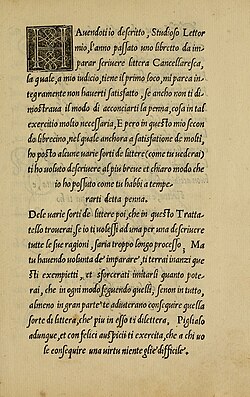 HAuendoti io descritto, Studioso Lettor
mio, l'anno passato uno libretto da im
parar scriuere littera Cancellaresca,
la quale, a mio iudicio, tiene il primo loco, mi parea in
tegramente non hauerti satisfatto, se ancho non ti di
mostraua il modo di acconciarti la penna, cosa in tal
excercitio molto necessaria, E pero in questo mio secon
do librecino, nel quale anchora a satisfatione de molti,
ho posto alcune uarie sorti de littere (come tu uederai)
ti ho uoluto descriuere al piu breue et chiaro modo che
io ho possuto come tu habbi a tempe
rarti detta penna.
De le uarie sorti de littere poi, che in questo Tratta
tello trouerai, se io ti uolessi ad una per una descriuere
tutte le sue ragioni, saria troppo longo processo, Ma
tu hauendo uolunta de' imparare', ti terrai inanzi que
sti exempietti, et sforcerati imitarli quanto pote
rai, che in ogni modo seguendo quelli, se non in tutto,
almeno in gran parte' te adiuterano conseguire quella
sorte di littera, che' piu in esso ti dilettera, Piglialo
adunque, et con felici auspicii ti exercita, che a chi uo
le conseguire una uirtu niente glie' difficile'.